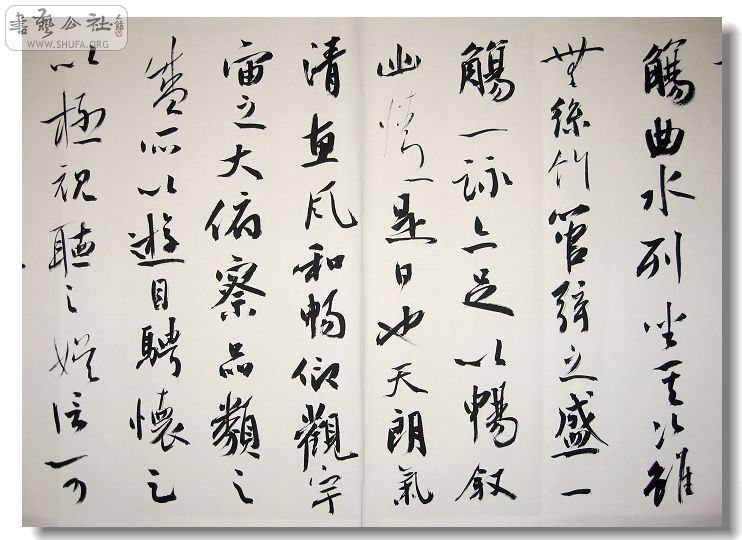 觴曲水列坐其次雖
無絲竹管弦之盛一
觴一詠亦足以暢叙
幽情是日也天朗氣
清惠風和暢仰觀宇
宙之大俯察品類之
盛所以遊目騁懷足
以極視聽之娛信可
書藝公社
WWW.SHUFA.ORG